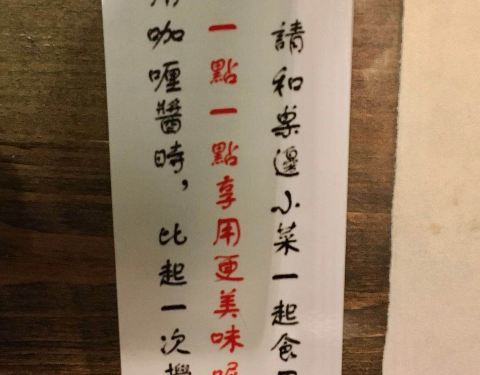 用咖喱醬時，比起一次
一點一點享用更美味喔
請和桌邊小菜一起食